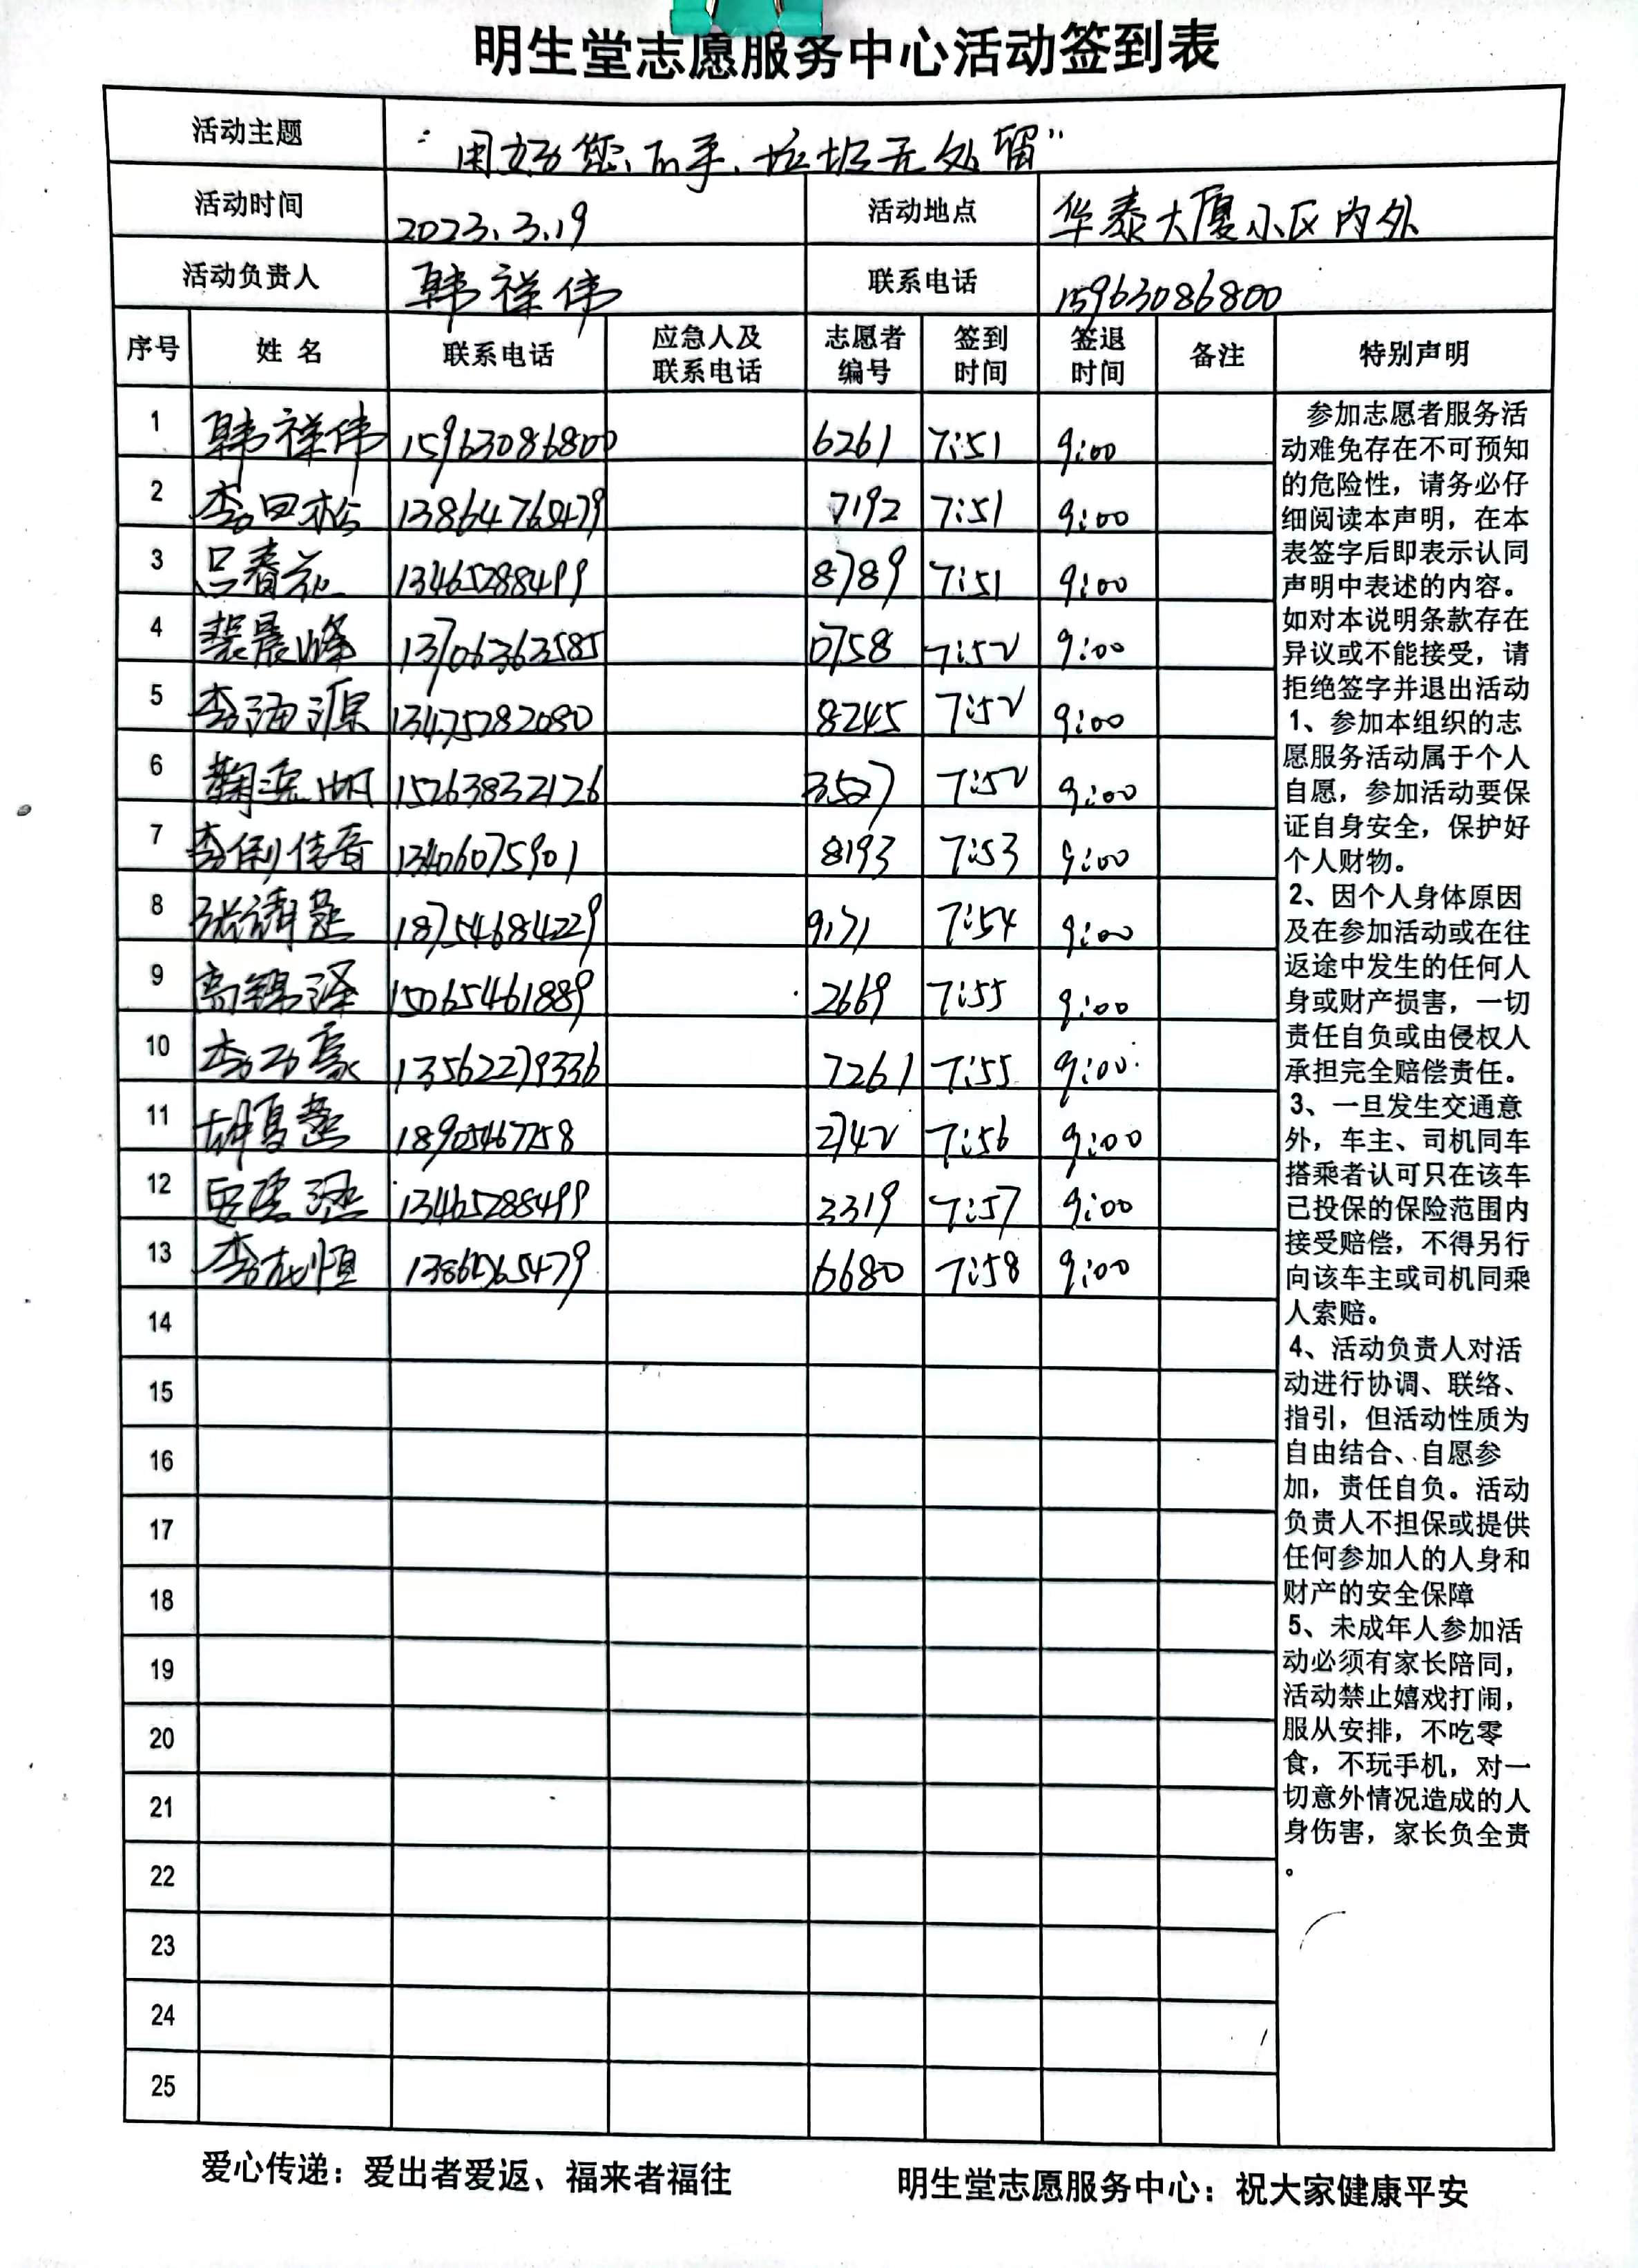 明生堂志愿服务中心活动签到表
活动主题 “用好您的手、垃圾无处留”
活动时间 2023.3.19 活动地点 华泰大厦小区内外
活动负责人 韩祥伟 联系电话 15963086800
序号 姓名 联系电话 应急人及联系电话 志愿者编号 签到时间 签退时间 备注 特别声明
1 韩祥伟 15963086800 6261 7:51 9:00
2 李曰松 13864760479 7192 7:51 9:00
3 吕春花 13465288499 8789 7:51 9:00
4 裴晨峰 13706363585 0758 7:52 9:00
5 李海源 13475782080 8245 7:52 9:00
6 15263832126 3527 7:52 9:00
7 13406075901 8193 7:53 9:00
8 18754684229 9171 7:54 9:00
9 高锦泽 15065461889 2669 7:55 9:00
10 李子豪 13562279336 7261 7:55 9:00
11 胡夏燕 18905467758 2742 7:56 9:00
12 13465288499 3319 7:57 9:00
13 6680 7:58 9:00
14
15
16
17
18
19
20
21
22
23
24
25
参加志愿者服务活
动难免存在不可预知
的危险性，请务必仔
细阅读本声明，在本
表签字后即表示认同
声明中表述的内容。
如对本说明条款存在
异议或不能接受，请
拒绝签字并退出活动
1、参加本组织的志
愿服务活动属于个人
自愿，参加活动要保
证自身安全，保护好
个人财物。
2、因个人身体原因
及在参加活动或在往
返途中发生的任何人
身或财产损害，一切
责任自负或由侵权人
承担完全赔偿责任。
3、一旦发生交通意
外，车主、司机同车
搭乘者认可只在该车
已投保的保险范围内
接受赔偿，不得另行
向该车主或司机同乘
人索赔。
4、活动负责人对活
动进行协调、联络、
指引，但活动性质为
自由结合、自愿参
加，责任自负。活动
负责人不担保或提供
任何参加人的人身和
财产的安全保障
5、未成年人参加活
动必须有家长陪同，
活动禁止嬉戏打闹，
服从安排，不吃零
食，不玩手机，对一
切意外情况造成的人
身伤害，家长负全责
。
爱心传递：爱出者爱返、福来者福往 明生堂志愿服务中心：祝大家健康平安